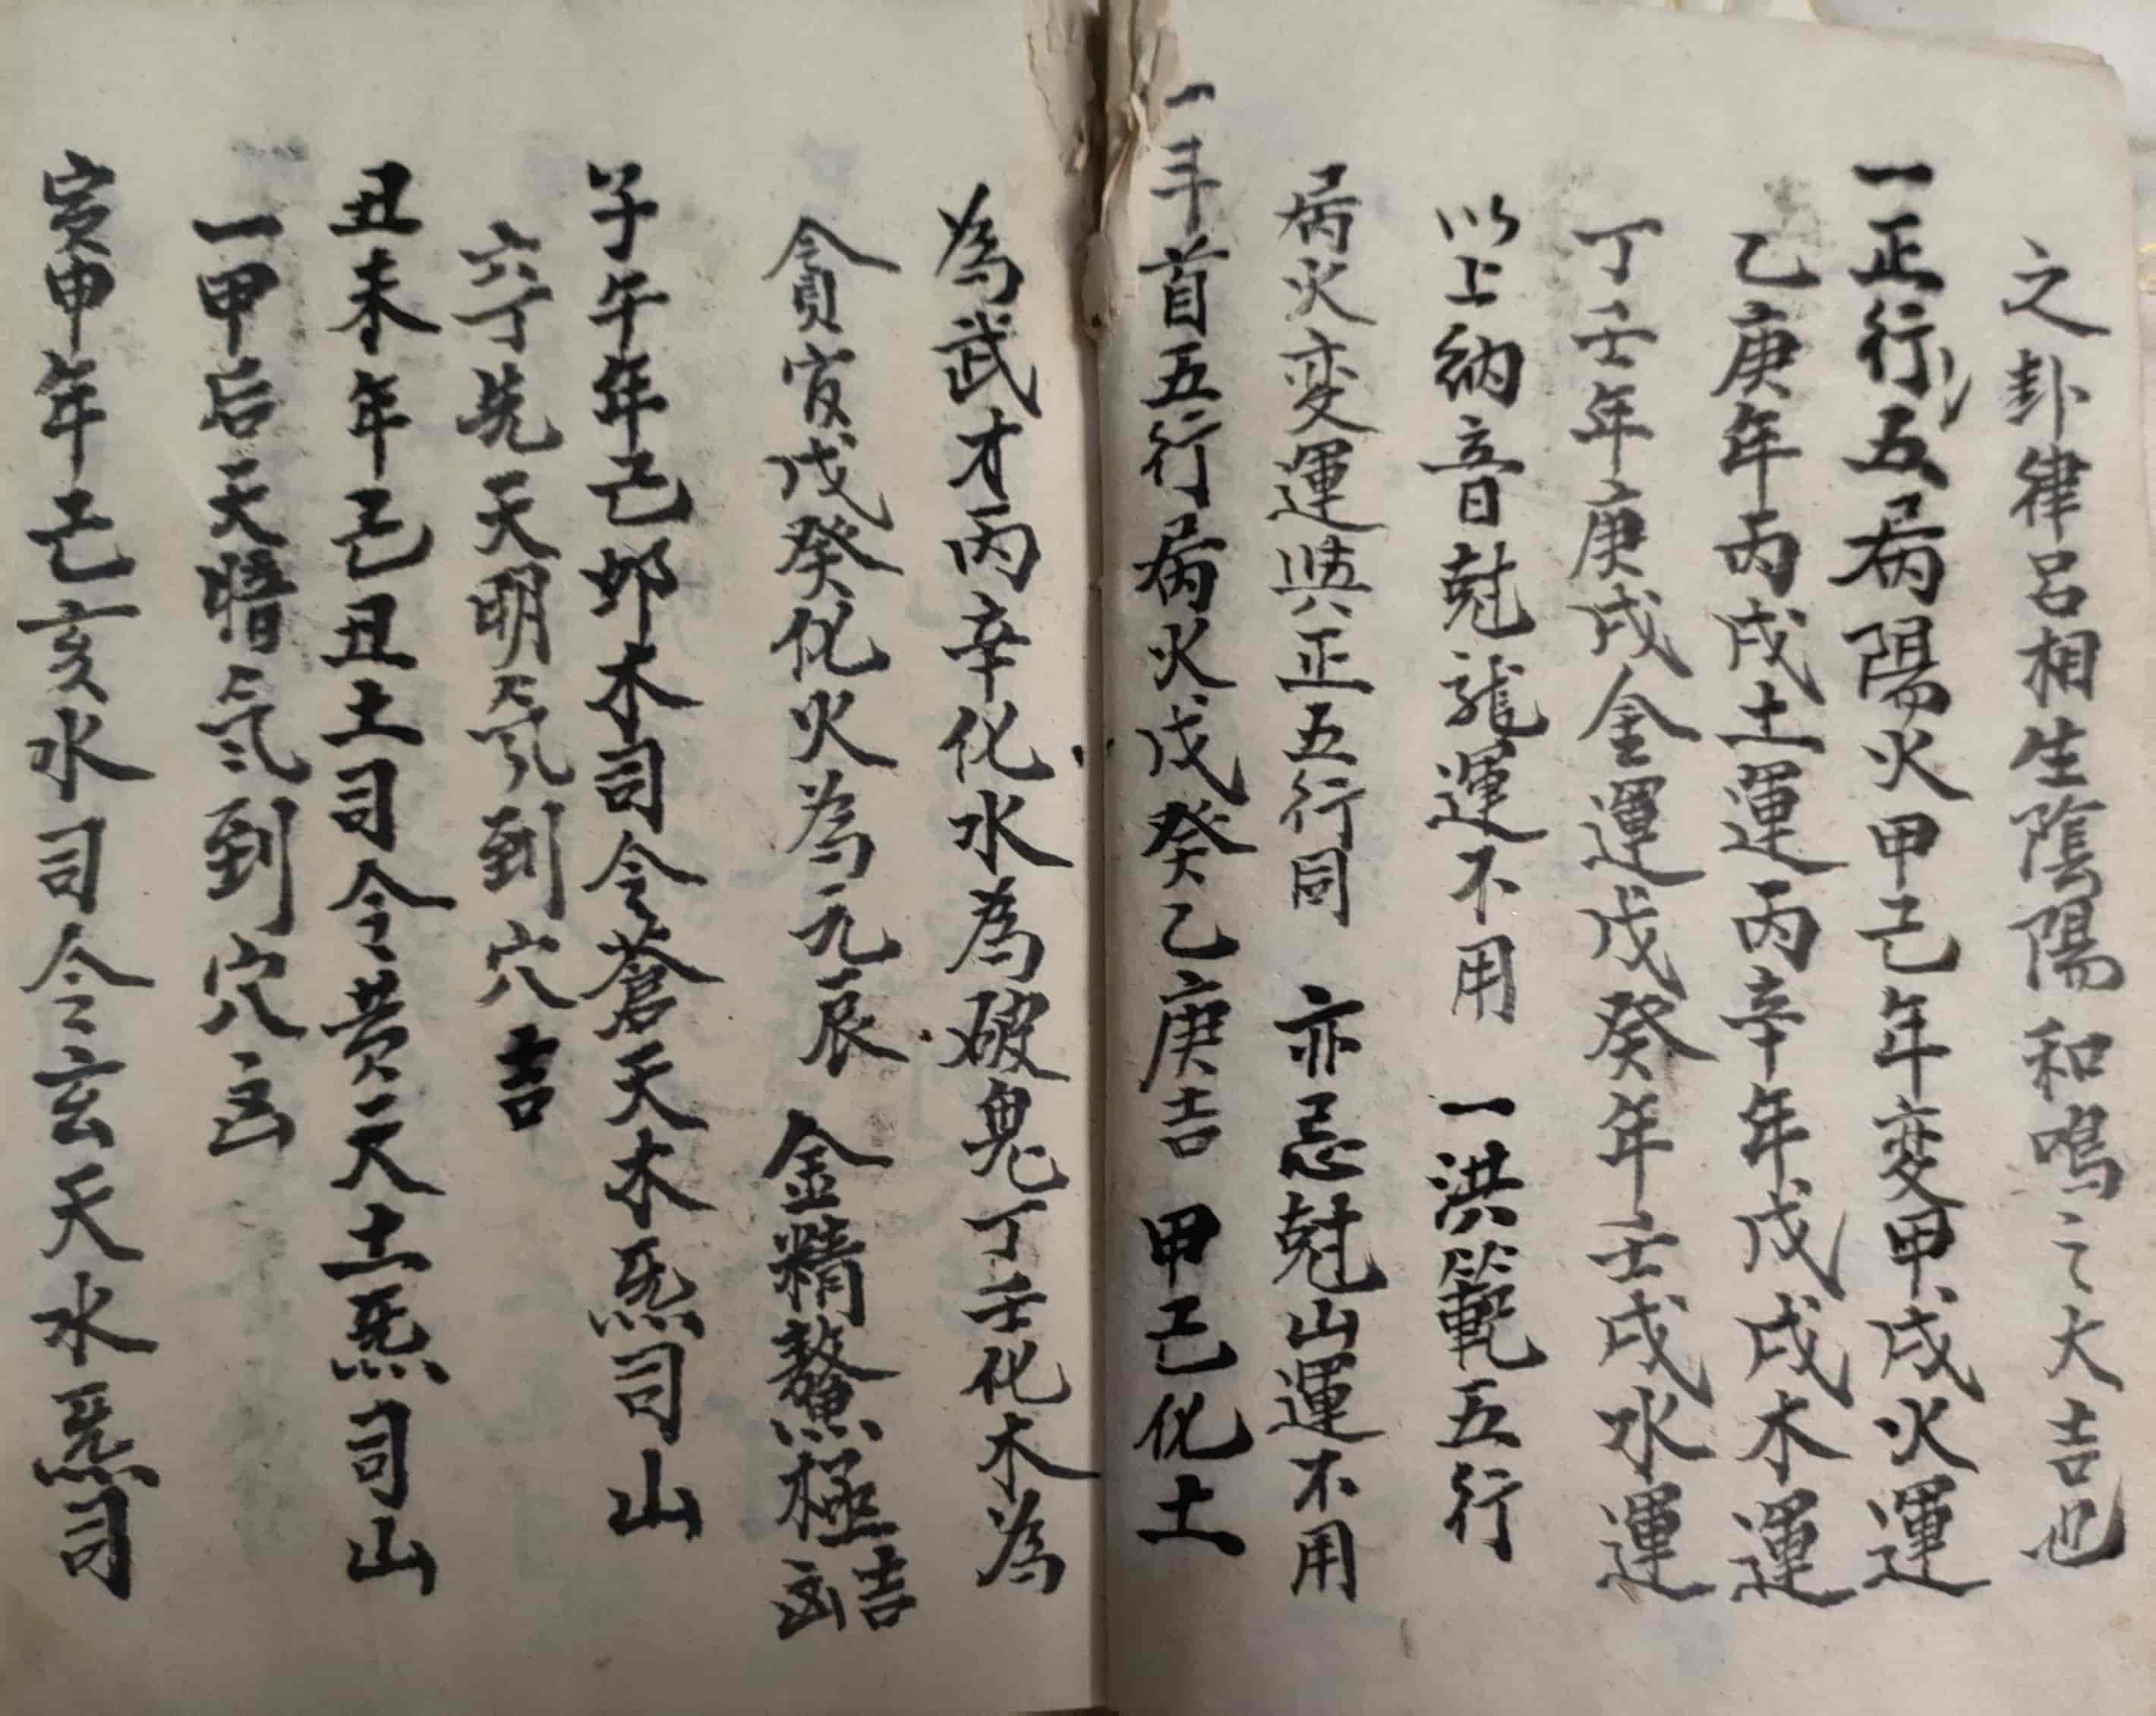 之卦律呂相生陰陽和鳴之大吉也
一正行五病陽火甲己年変甲戌火運
乙庚年丙戌土運丙辛年戊戌木運
丁壬年庚戌金運戊癸年壬戌水運
以上納音尅龍運不用 一洪範五行
病火変運與正五行同 亦忌尅山運不用
一斗首五行病火戊癸乙庚吉 甲己化土
為武才丙辛化水為破鬼丁壬化木為
貪官戊癸化火為元辰 金精鰲極吉凶
子午年己卯木司令蒼天木炁司山
六丁先天明氣到穴吉
丑未年己丑土司令黄天土炁司山
一甲后天暗氣到穴凶
寅申年己亥水司令玄天水炁司